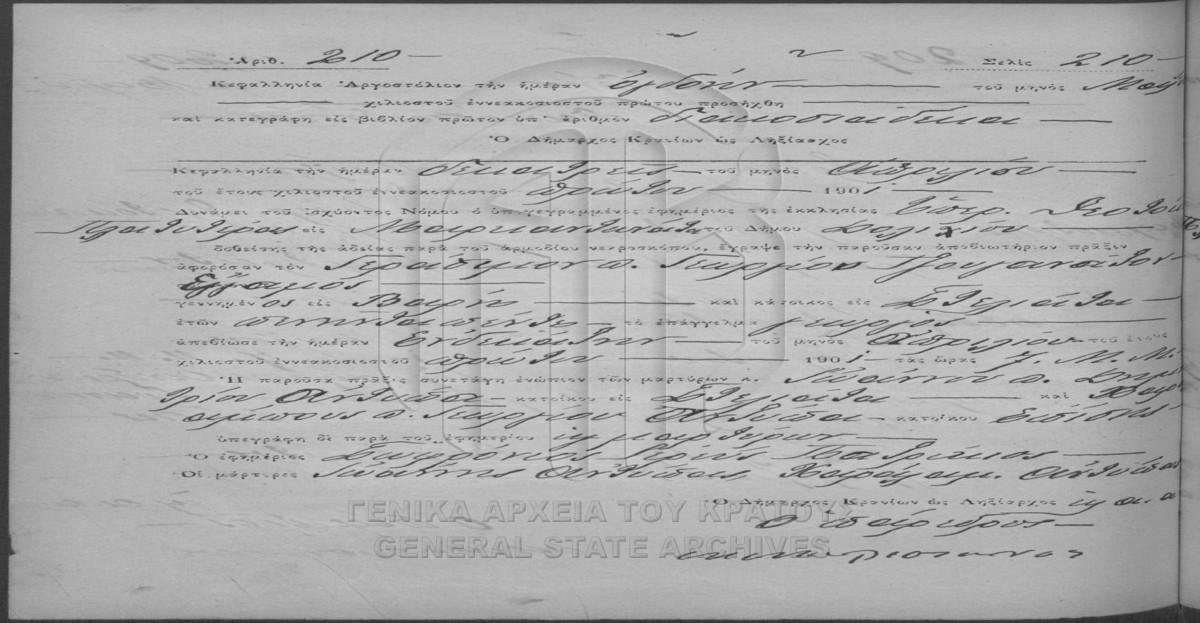 Ἀριθ. 210 — Σελὶς 210 —
Κεφαλληνία Ἀργοστόλιον τὴν ἡμέραν ὀγδόην — τοῦ μηνὸς Μαΐ
— χιλιοστοῦ ἐννεακοσιοστοῦ πρώτου προσήχθη —
καὶ κατεγράφη εἰς βιβλίον πρῶτον ὑπ' ἀριθμὸν διακόσια δέκα —
Ὁ Δήμαρχος Κρανίων ὡς Ληξίαρχος
Κεφαλληνία τὴν ἡμέραν δεκάτρεις — τοῦ μηνὸς Ἀπριλίου —
τοῦ ἔτους χιλιοστοῦ ἐννεακοσιοστοῦ πρώτου — 1901 —
Δυνάμει τοῦ ἰσχύοντος Νόμου ὁ ὑπογεγραμμένος ἐφημέριος τῆς ἐκκλησίας Ὑπερ. Θεοτόκου
Πλατυτέρας εἰς τοῦ Δήμου —
δοθείσης τῆς ἀδείας παρὰ τοῦ ἁρμοδίου νεκροσκόπου, ἔγραψε τὴν παροῦσαν ἀποβιωτήριον πρᾶξιν
ἀφορῶσαν τὸν Γεράσιμον π. Γεωργίου
Ἔγγαμος —
γεννημένος εἰς Βαρὴ — καὶ κάτοικος εἰς —
ἐτῶν πενῆντα πέντε — τὸ ἐπάγγελμα γεωργὸς —
ἀπεβίωσε τὴν ἡμέραν ἑνδεκάτην — τοῦ μηνὸς Ἀπριλίου τοῦ ἔτους
χιλιοστοῦ ἐννεακοσιοστοῦ πρώτου — 1901 — τὰς ὥρας 7. Μ. Μ.
Ἡ παροῦσα πρᾶξις συνετάγη ἐνώπιον τῶν μαρτύρων κ. Ἰωάννου π. Δημη
τρίου Ἀντύπα — κατοίκου εἰς — καὶ Χαρα
λάμπους π. Γεωργίου Ἀντύπα — κατοίκου ἐπίσης —
ὑπεγράφη δὲ παρὰ τοῦ ἐφημερίου καὶ μαρτύρων —
Ὁ ἐφημέριος Σωφρόνιος Ἱερεὺς —
Οἱ μάρτυρες Ἰωάννης Ἀντύπας, Χαράλαμ. Ἀντύπας
Ὁ Δήμαρχος Κρανίων ὡς Ληξίαρχος
Ὁ πάρεδρος —
ΓΕΝΙΚΑ ΑΡΧΕΙΑ ΤΟΥ ΚΡΑΤΟΥΣ
GENERAL STATE ARCHIVES